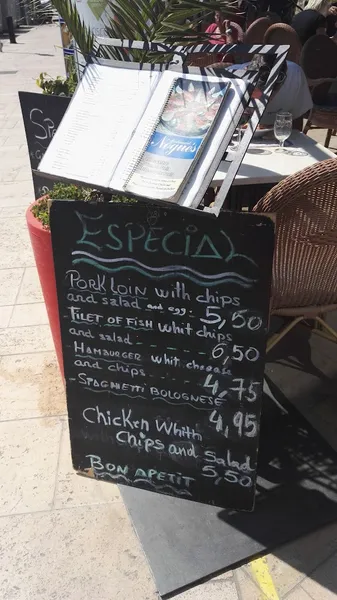 Noguis
ESPECIAL
PORK LOIN with chips
and salad and egg 5,50
FILET OF FISH whit chips
and salad 6,50
HAMBURGER whit cheese
and chips 4,75
-SPAGHETTI BOLOGNESE 4,95
CHICKEN WHITH
CHIPS and SALAD
5,50
BON APETIT